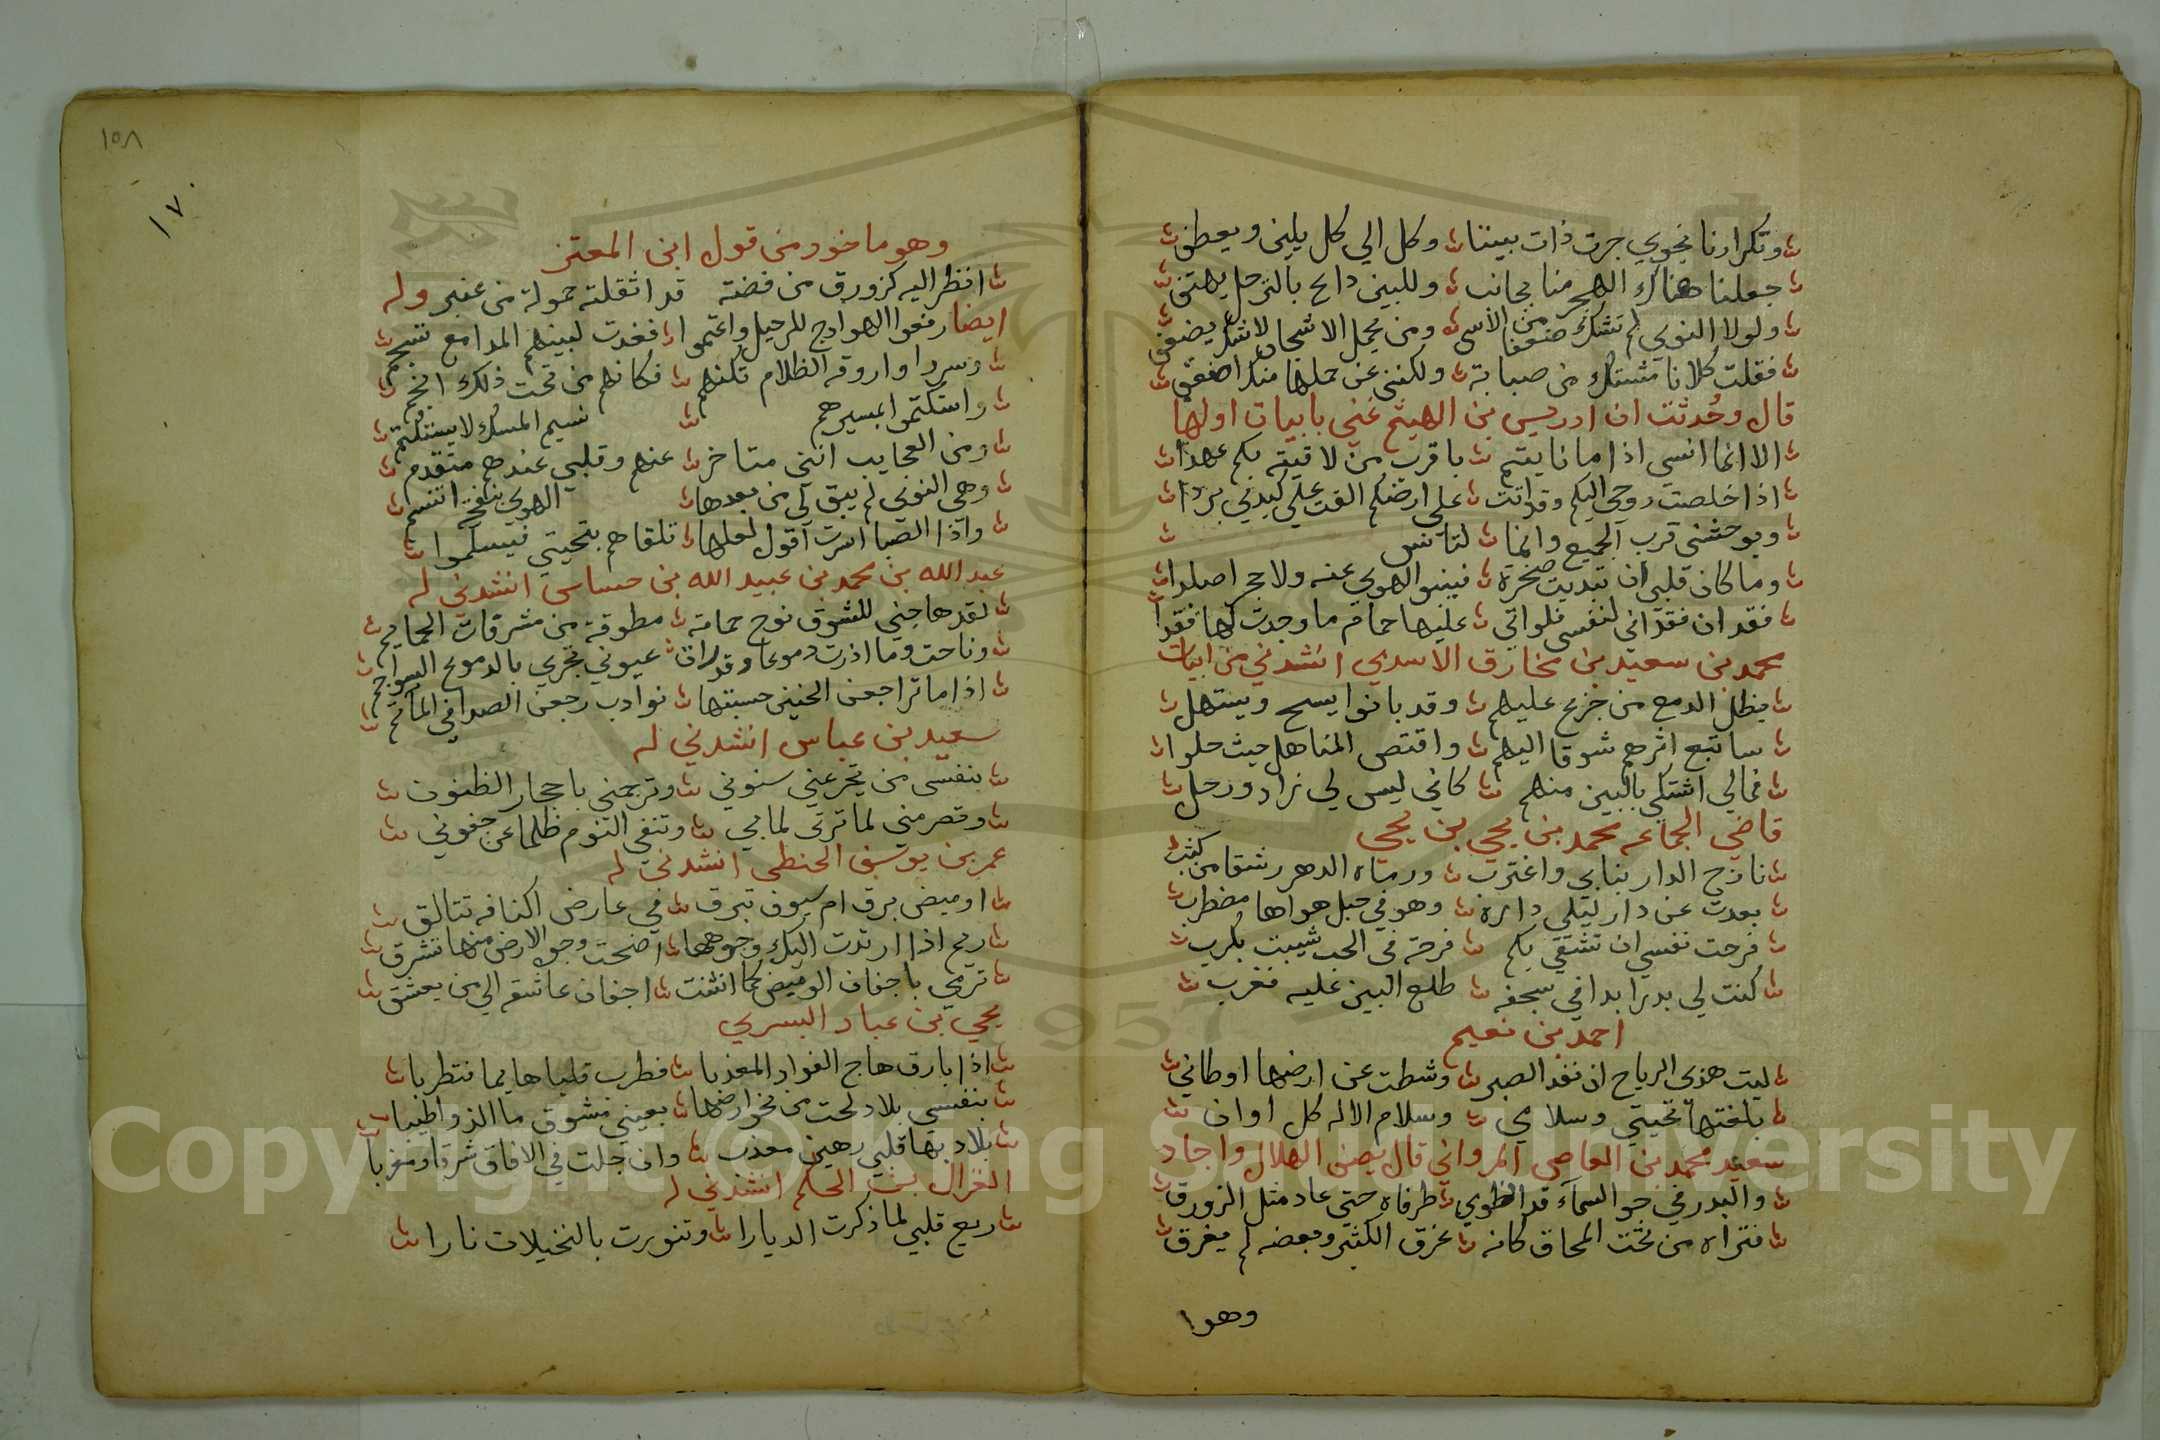 وتكرارنا نجوي جرت ذات بيننا وكل الي كل يلين ويعطف
جعلنا هناك الهجر منا بجانب وللبين داع بالترحل يهتف
ولولا النوي لم نشك ضعفا من الأسى ومن يحمل الاشجان لاشك يضعف
فقلت كلانا مشتك من صبابة ولكنني عن حملها منك اضعف
قال وحُدثت ان ادريس بن الهيثم غني بابيات اولها
الا انما انسي اذا ما نايتم باقرب من لاقيته بكم عهدا
اذا خلصت روحي اليكم وقد اتت علي ارضكم الفت علي كبدي بردا
ويوحشني قرب الجميع وانما لتانس
وما كان قلبي ان تبديت صخرة فينبو الهوي عنه ولا حجرا صلدا
فقد ان فقداني لنفسي فلواتي عليها حمام ما وجدت لها فقدا
محمد بن سعيد بن مخارق الاسدي انشدني من ابيات
يظل الدمع من جزع عليهم وقد بانوا يسح ويستهل
ساتبع اثرهم شوقا اليهم واقتص المناهل حيث حلوا
فمالي اشتكي بالبين منهم كاني ليس لي زاد ورحل
قاضي الجماعه محمد بن يحيي بن يحيي
نازح الدار بنابي واغترب ورماه الدهر رشقا من كثب
بعدت عن دار ليلي داره وهو في حبل هواها مضطرب
فرحت نفسي ان تشقي بكم فرحة في الحب شيبت بكرب
كنت لي بدرا بدا في سجفه طلع البين عليه فغرب
احمد بن نعيم
ليت هذي الرياح ان نفد الصبر وشطت عن ارضها اوطاني
بلغتها تحيتي وسلامي وسلام الاله كل اوان
سعيد محمد بن العاصي المرواني قال يصف الهلال واجاد
والبدر في جو السمآء قد انطوي طرفاه حتى عاد مثل الزورق
فتراه من تحت المحاق كانه غرق الكثير وبعضه لم يغرق
وهوا
١٥٨
١٧٠
وهو ماخوذ من قول ابن المعتز
انظر اليه كزورق من فضة قد اثقلته حمولة من عنبر وله
ايضا رفعوا الهوادج للرحيل واعتموا فغدت لبينهم المدامع تسجم
وسروا واروقة الظلام تكنهم فكانهم من تحت ذلك انجم
واستكتموا بمسيرهم نسيم المسك لا يستكتم
ومن العجايب انني متاخر عنهم وقلبي عندهم متقدم
وهي النوي لم يبق لي من بعدها الهوي بنفحة اتنسم
واذا الصبا اسرت اقول لعلها تلقاهم بتحيتي فيسلموا
عبد الله بن محمد بن عبيد الله بن حساس انشدني له
لقد هاجني للشوق نوح حمامة مطوقة من مشرقات الحمايم
وناحت وما اذرت دموعا وقد رات عيوني تجري بالدموع السواجم
اذا ما تراجعن الحنين حسبتها نوادب رجعن الصدا في المآتم
سعيد بن عباس انشدني له
بنفسي من يجرعني سنوني وترجمني باحجار الظنون
وتصرمني لما ترثى لمابي وتنفي النوم ظلما عن جفوني
عمر بن يوسف الحنطي انشدني له
اوميض برق ام سيوف تبرق في عارض اكنافه تتالق
ريح اذا ارتدت اليك وجوهها اضحت وجو الارض منها تشرق
ترمي باجفان الوميض كما انثنت اجفان عاشقة الي من يعشق
يحيي بن عباد البسري
اذا بارق هاج الفواد المعذبا فطرب قلبا هايما فتطربا
بنفسي بلاد لحت من نحو ارضها بعيني مشوق ما الذ واطيبا
بلاد بها قلبي رهين معذب وان جلت في الافاق شرقا ومغربا
الغزال بن الحكم انشدني له
ريع قلبي لما ذكرت الديارا وتنورت بالنخيلات نارا
Copyright © King Saud University
1957